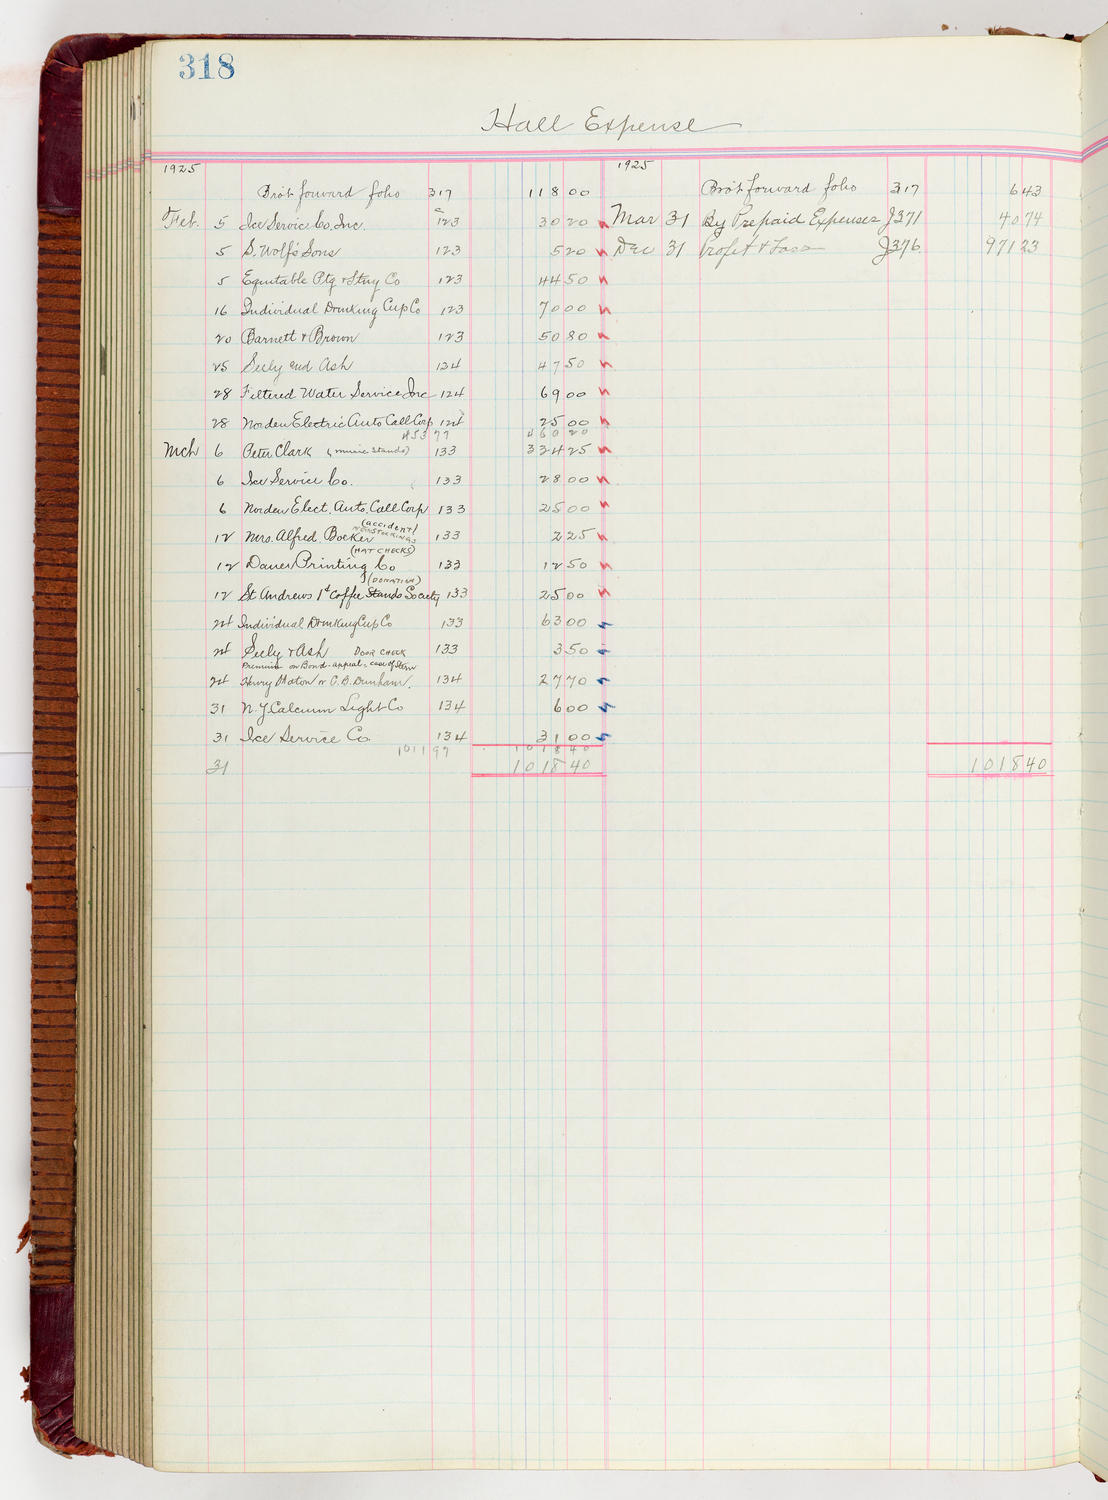 318
Hall Expense
1925
Bro't forward folio 317 118 00
Feb. 5 Ice Service Co. Inc. 123 30 20
5 S. Wolf's Sons 123 5 20
5 Equitable Ptg & Stny Co 123 44 50
16 Individual Drinking Cup Co 123 70 00
20 Barnett & Brown 123 50 80
25 Seely and Ash 124 47 50
28 Filtered Water Service Inc 124 69 00
28 Norden Electric Auto Call Corp 124 25 00
453 77 460 20
Mch 6 Peter Clark (music stands) 133 334 25
6 Ice Service Co. 133 28 00
6 Norden Elect. Auto. Call Corp 133 25 00
(accident)
12 Mrs. Alfred Bocker stockings 133 2 25
(HAT CHECKS)
12 Danes Printing Co 133 12 50
(DONATION)
12 St Andrews 1¢ Coffee Stands Society 133 25 00
24 Individual Drinking Cup Co 133 63 00
24 Seely & Ash DOOR CHECK 133 3 50
Premium on Bond - appeal - case of Stern
24 Henry Moton or C. B. Dunham. 134 27 70
31 N.Y. Calcium Light Co 134 6 00
31 Ice Service Co. 134 31 00
1011 97 1018 40
31 1018 40
1925
Bro't forward folio 317 6 43
Mar 31 By Prepaid Expenses J371 40 74
Dec 31 Profit & Loss J376 971 23
1018 40